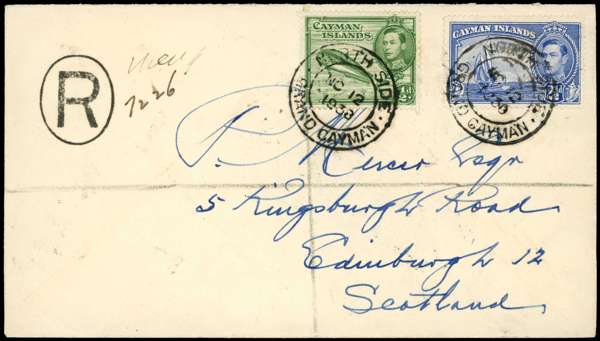 CAYMAN
ISLANDS
CAYMAN ISLANDS
NORTH SIDE
NO 12
1938
GRAND CAYMAN
NORTH
GRAND CAYMAN
R
7226
P. Mercer Esqr
5 Kingsburgh Road
Edinburgh 12
Scotland